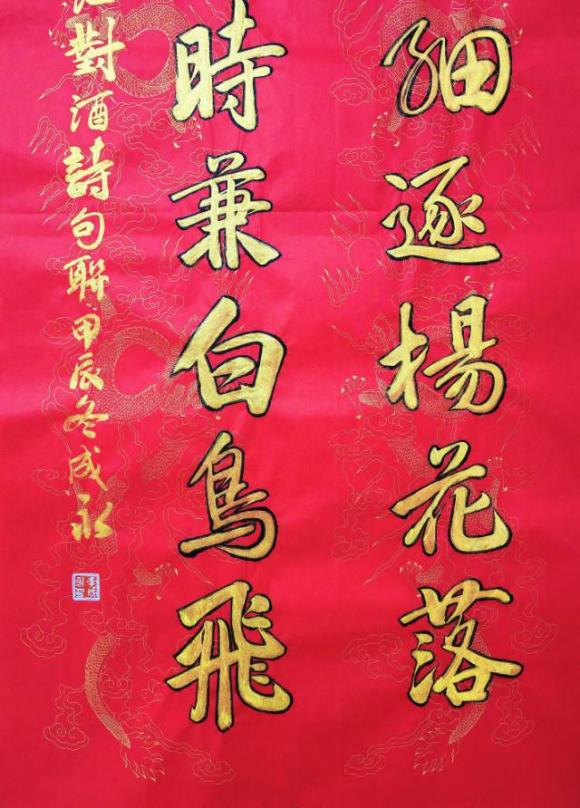 細逐楊花落
時兼白鳥飛
對酒詩句聯甲辰冬成永